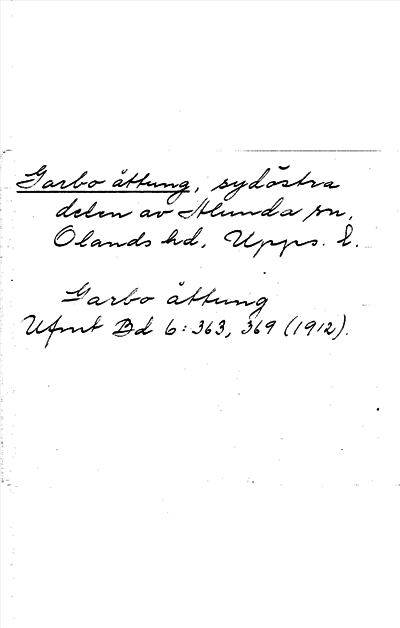 Garbo åttung, sydöstra
delen av Alunda sn,
Olands hd, Upps. l.
Garbo åttung
Ufmt Bd 6: 363, 369 (1912).